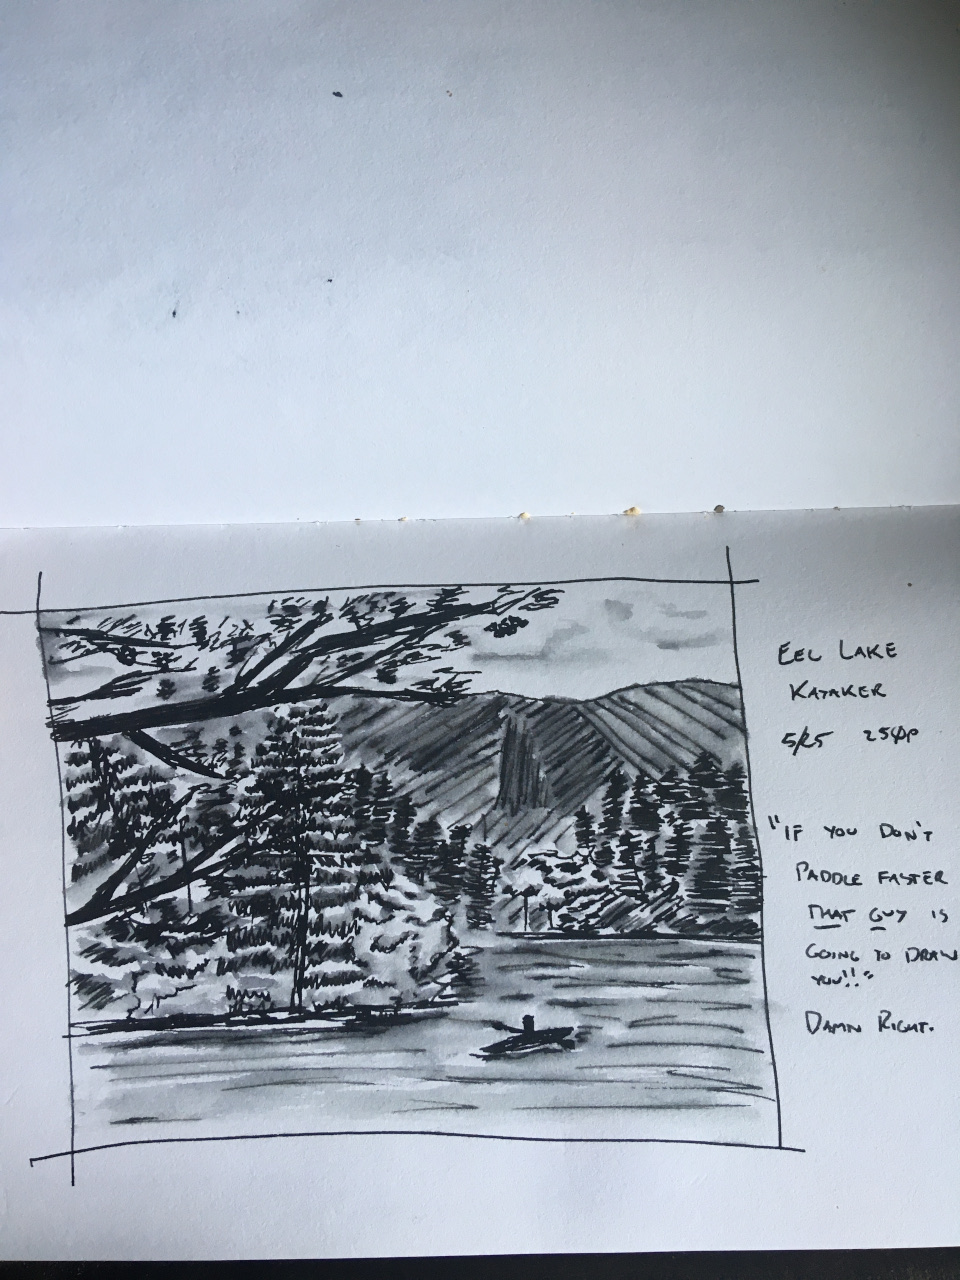 EEL LAKE
KAYAKER
5/25
"IF YOU DON'T
PADDLE FASTER
THAT GUY IS
GOING TO DRAW
YOU!!"
DAMN RIGHT.